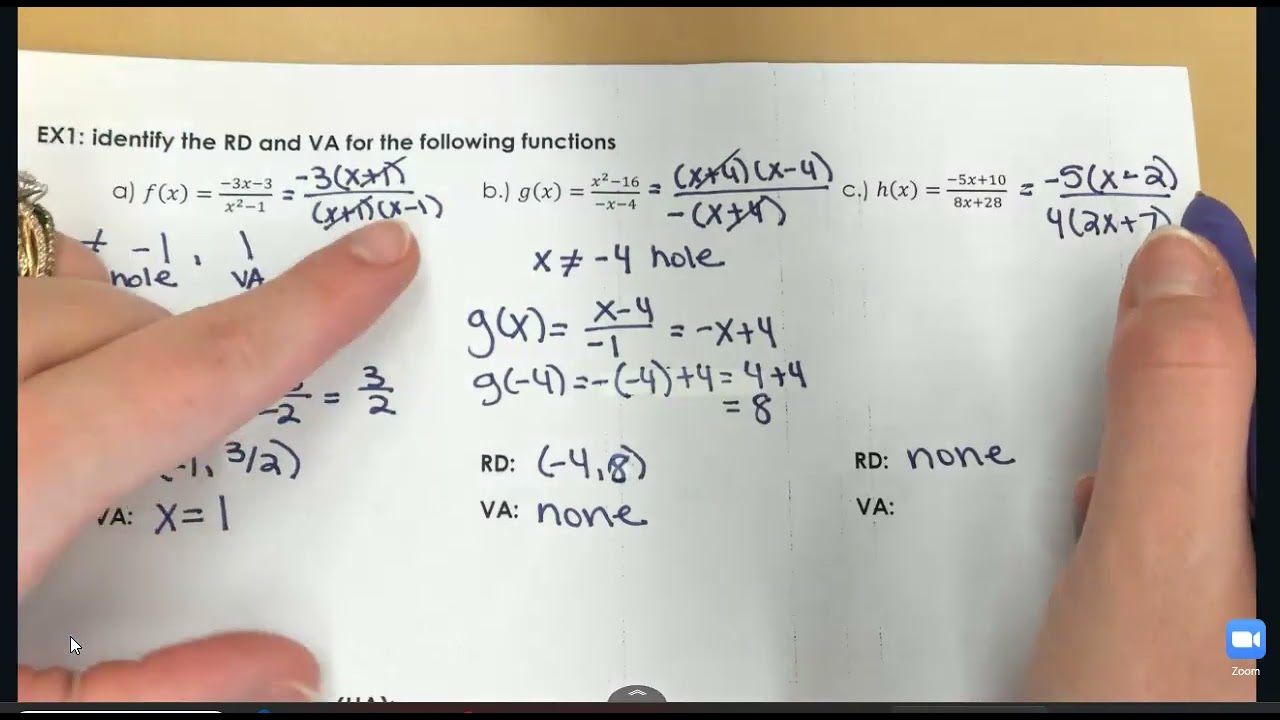 EX1: identify the RD and VA for the following functions
a) f(x) = \frac{-3x-3}{x^2-1} = \frac{-3(x+1)}{(x+1)(x-1)}
≠ -1, 1
hole VA
-2 = \frac{3}{2}
-1, 3/2)
VA: x = 1
b.) g(x) = \frac{x^2-16}{-x-4} = \frac{(x+4)(x-4)}{-(x+4)}
x ≠ -4 hole
g(x) = \frac{x-4}{-1} = -x+4
g(-4) = -(-4)+4 = 4+4
= 8
RD: (-4, 8)
VA: none
c.) h(x) = \frac{-5x+10}{8x+28} = \frac{-5(x-2)}{4(2x+7)}
RD: none
VA:
Zoom